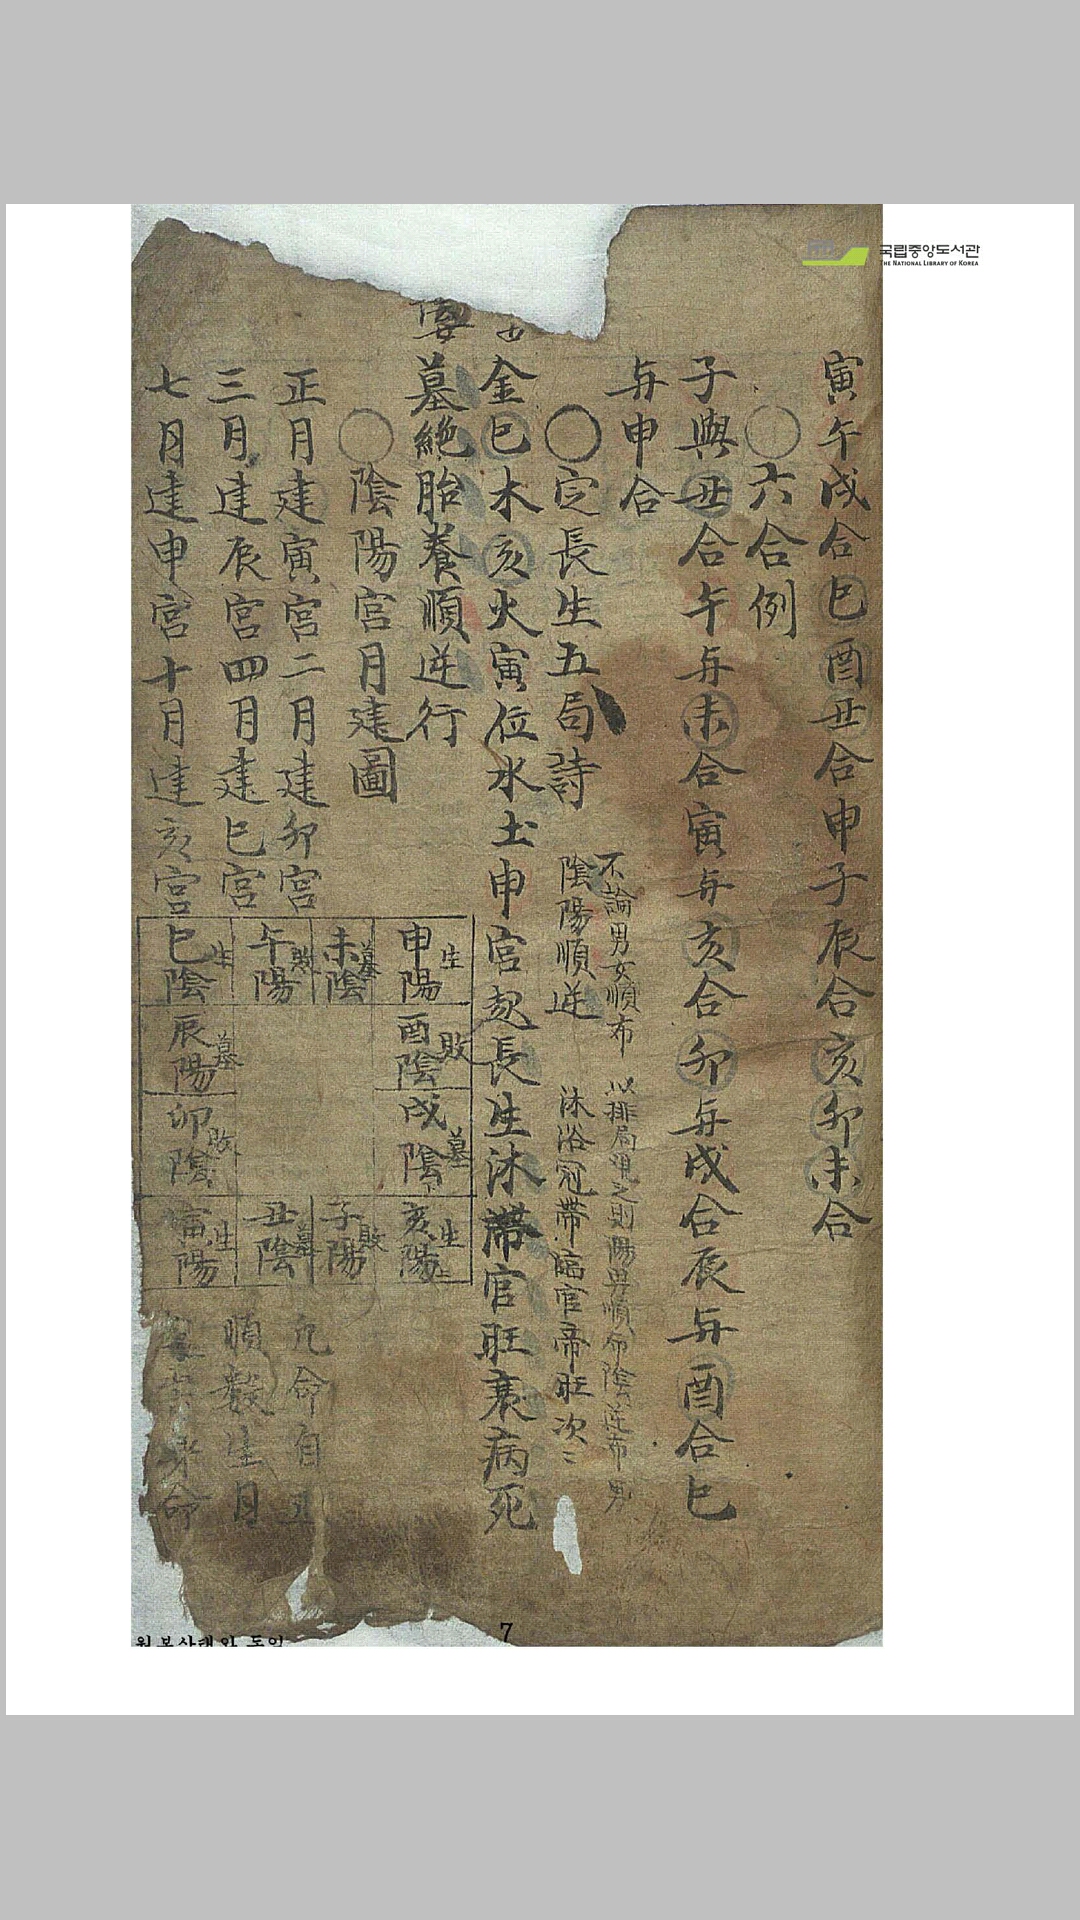 寅午戌合巳酉丑合申子辰合亥卯未合
○六合例
子與丑合午与未合寅与亥合卯与戌合辰与酉合巳
与申合
○定長生五局詩
不論男女順布
陰陽順逆
以排局
沐浴冠帶臨官帝旺次〻
金巳木亥火寅位水土申宮起長生沐帶官旺衰病死
墓絶胎養順逆行
○陰陽宮月建圖
正月建寅宮二月建卯宮
三月建辰宮四月建巳宮
七月建申宮十月建亥宮
申陽 生
未陰 墓
午陽 敗
巳陰 生
酉陰 敗
辰陽 墓
戌陰 墓
卯陰 敗
亥陽 生
子陽 敗
丑陰 墓
寅陽 生
命自
順數生月
命
국립중앙도서관
THE NATIONAL LIBRARY OF KOREA
7